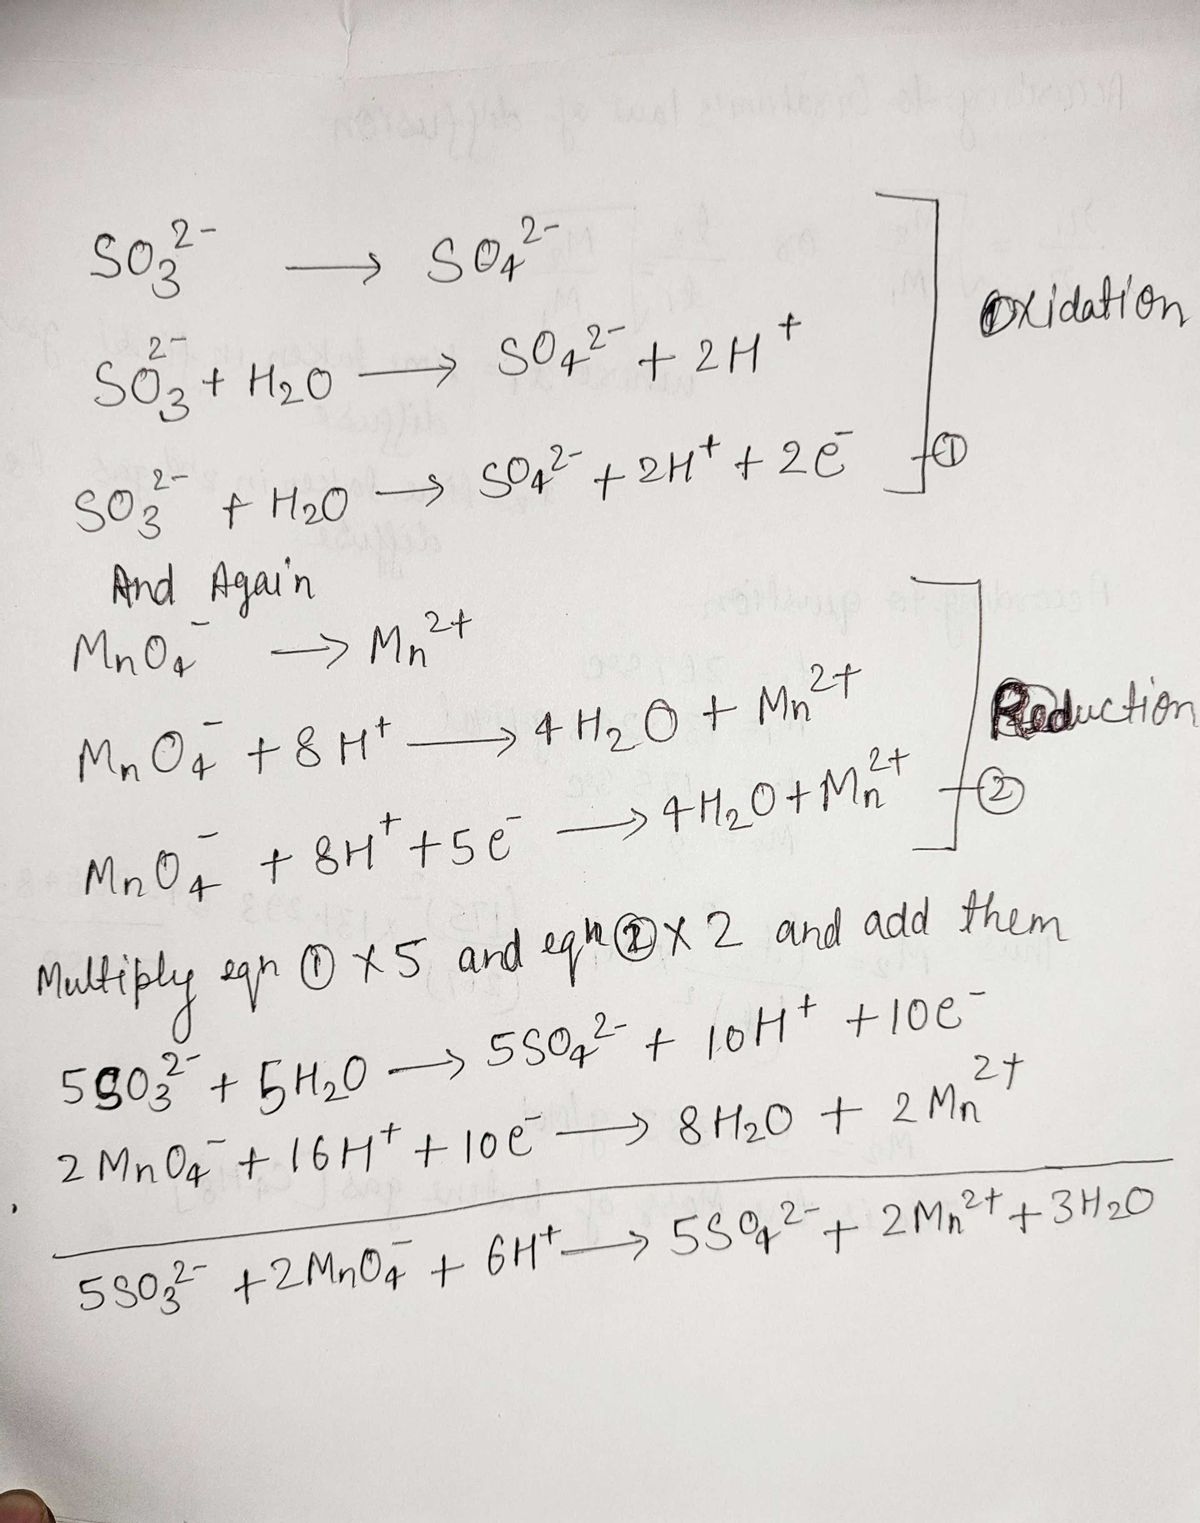 SO₃²⁻ → SO₄²⁻
Oxidation
SO₃²⁻ + H₂O → SO₄²⁻ + 2H⁺
SO₃²⁻ + H₂O → SO₄²⁻ + 2H⁺ + 2e⁻ ①
And Again
MnO₄⁻ → Mn²⁺
MnO₄⁻ + 8H⁺ → 4H₂O + Mn²⁺
Reduction
MnO₄⁻ + 8H⁺ + 5e⁻ → 4H₂O + Mn²⁺ ②
Multiply eqn ① X 5 and eqn ② X 2 and add them
5SO₃²⁻ + 5H₂O → 5SO₄²⁻ + 10H⁺ + 10e⁻
2MnO₄⁻ + 16H⁺ + 10e⁻ → 8H₂O + 2Mn²⁺
5SO₃²⁻ + 2MnO₄⁻ + 6H⁺ → 5SO₄²⁻ + 2Mn²⁺ + 3H₂O